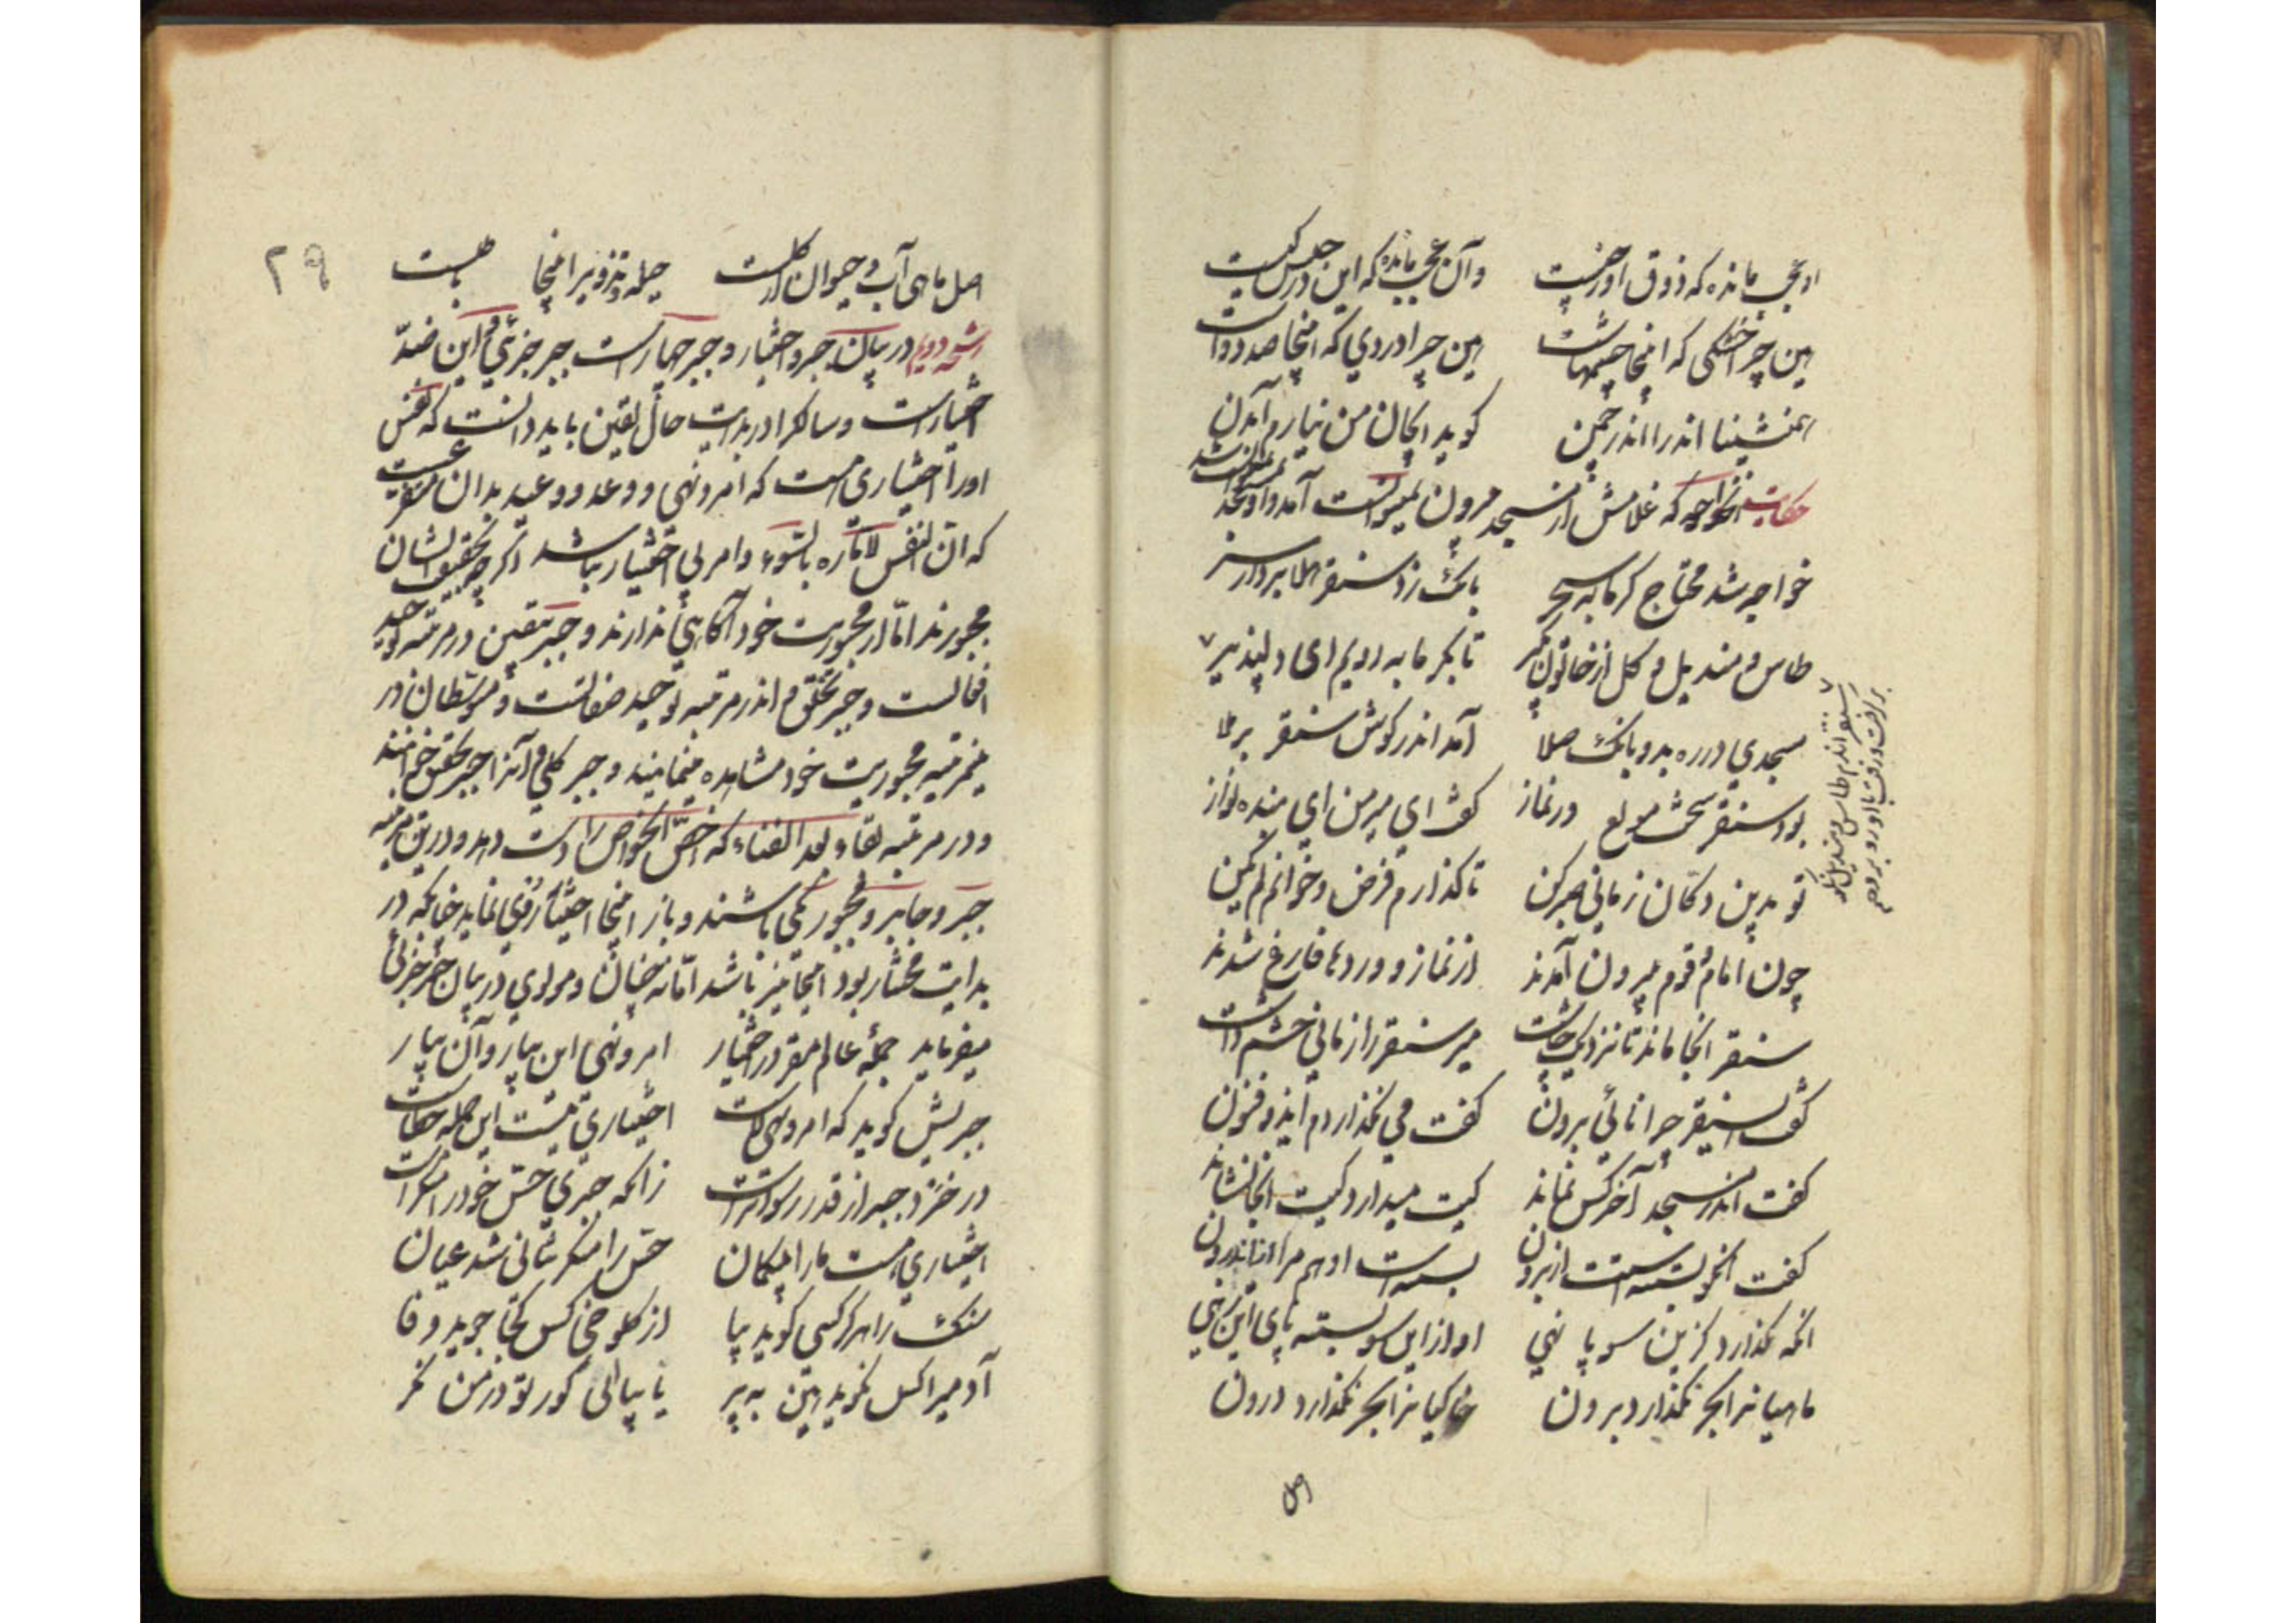 او عجب مانده که ذوق او ز چیست وآن عجب مانده که این در حبس کیست
هین چرا خشکی که اینجا چشمهاست هین چرا دردی که اینجا صد دواست
همنشینا اندر آ اندر چمن کوید ای جان من نیارم آمدن
حکایت آنخواجه که غلامش از مسجد بیرون نمیتوانست آمد و او بمسجد نمیتوانست شد
خواجه شد محتاج کرمابه سحر بانک زد سنقر هلا بردار سر
طاس و مندیل و کل از خاتون بکیر تا بکرمابه رویم ای دلپذیر
سنقر اندم طاس و مندیل نکو
بر کرفت و رفت با او رو برو صح
مسجدی در ره بد و بانک صلا آمد اندر کوش سنقر برملا
بود سنقر سخت مولع در نماز کفت ای میر من ای بنده نواز
تو بدین دکان زمانی صبر کن تا کذارم فرض و خوانم لم یکن
چون امام و قوم بیرون آمدند از نماز و وردها فارغ شدند
سنقر انجا ماند تا نزدیک چاشت میر سنقر را زمانی چشم داشت
کفت ای سنقر چرا نائی برون کفت می نکذاردم این ذو فنون
کفت اندر مسجد آخر کس نماند کیت میدارد کیت انجا نشاند
کفت انکو بسته است از برون بسته است او هم مرا از اندرون
انکه نکذارد کزین سو پا نهی او از این سو بسته پای این رهی
ماهیانرا بحر نکذارد برون خاکیانرا بحر نکذارد درون
اصل
۲۹
اصل ماهی آب و حیوان از کلست حیله و تزویر اینجا باطلست
رشحه دویم در بیان جبر و اختیار و جبر چهار است جبر جزئی و این ضد
اختیار است و سالکرا در بدایت حال یقین باید دانست که نفس
اورا اختیاری هست که امر و نهی و وعد و وعید بدان متفرعست
که ان النفس لامارة بالسوء و امر بی اختیار نباشد اکر چه بتحقیق ایشان
مجبورند اما از مجبوریت خود آکاهی ندارند و جبر یقین در مرتبه توحید
افعالست و جبر تخلق و اندر مرتبه توحید صفاتست و متوسطان در
مرتبه مجبوریت خود مشاهده مینمایند و جبر کلی و آنرا جبر تحقق خوانند
و در مرتبه بقاء بعد الفناء که اخص الخواص را دست دهد و درین مرتبه
جبر و جابر و مجبور یکی باشند و باز اینجا اختیار نماید چنانکه در
بدایت مختار بود اینجا نیز باشد اما نه چنان و مولوی در بیان جبر جزئی
میفرماید جمله عالم مقر در اختیار امر و نهی این بیار و آن بیار
جبریش کوید که امر و نهی لاست اختیاری نیست این جمله خطاست
در خرد جبر از قدر رسواتر است زانکه جبری حس خود را منکر است
اختیاری هست ما را بیکمان حس را منکر نتانی شد عیان
سنک را هرکز کسی کوید بیا از کلوخی کس کجا جوید وفا
آدمیرا کس نکوید هین بپر یا بیا ای کور تو در من نکر